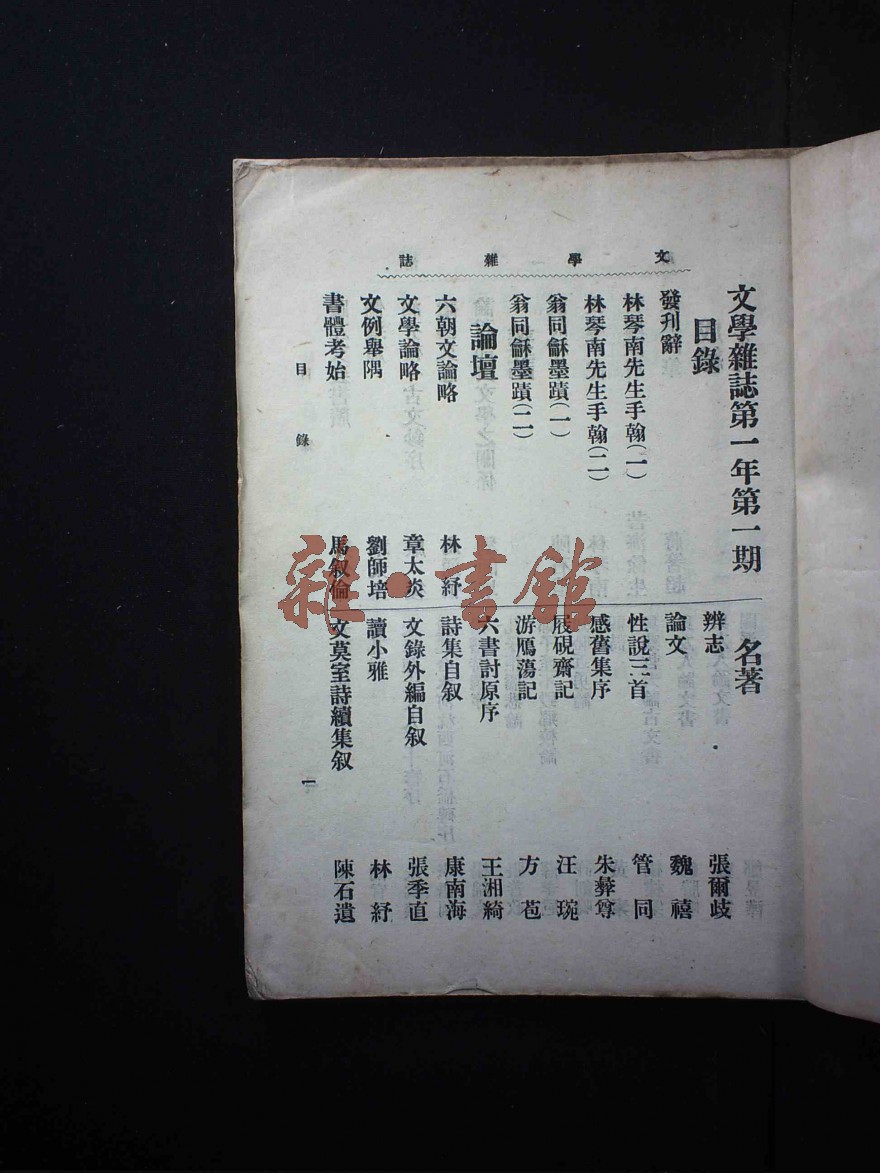 文學雜誌
文學雜誌第一年第一期
目錄
發刊辭
林琴南先生手翰(一)
林琴南先生手翰(二)
翁同龢墨蹟(一)
翁同龢墨蹟(二)
論壇
六朝文論略 林紓
文學論略 章太炎
文例舉隅 劉師培
書體考始 馬敘倫
名著
辨志 張爾歧
論文 魏禧
性說三首 管同
感舊集序 朱彝尊
屐硯齋記 汪琬
游鴈蕩記 方苞
六書討原序 王湘綺
詩集自叙 康南海
文錄外編自叙 張季直
讀小雅 林紓
文莫室詩續集叙 陳石遺
目錄 一
雜·書館